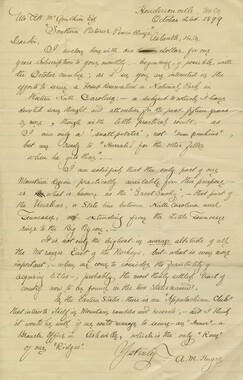 Hendersonville, N.C.
October 24th 1899
Mr. C.P. McQuilkin Ed
Southern Pictures Pines Mag
Asheville, N.C.
Dear Sir,
I enclose herewith one dollar, for one
year's subscription to your monthly - beginning, if possible, with
the October number; as I see you are interested in the
effort to secure a Forest Reservation or National Park in
Western North Carolina; - a subject to which I have
devoted much thought and attention for the past fifteen years
or more, though with little practical result - as
I am only a "small potato", not "some pumkins",
but am ready to "Hurrah for the other feller
when he gits thar".
I am satisfied that the only part of our
Mountain Region practically available for this purpose
is what is known as the "Great Smoky" - that part of
the Unakas, or State line between North Carolina and
Tennessee, extending from the Little Tennessee
river to the Big Pigeon.
It is not only the highest in average altitude of all
the Mt ranges East of the Rockies, but what is even more
important, when we come to consider the practicability of
acquiring titles - probably, the most thinly settled East of
country now to be found in the two States named.
In the Eastern States there is an "Appalachian Club"
that interests itself in Mountain rambles and research, and I think
it would be well if we could manage to secure an "Annex", or
Branch Office in Asheville, which is the only "Rome"
of our "Ridges".
Yours truly,
A.M. Huger